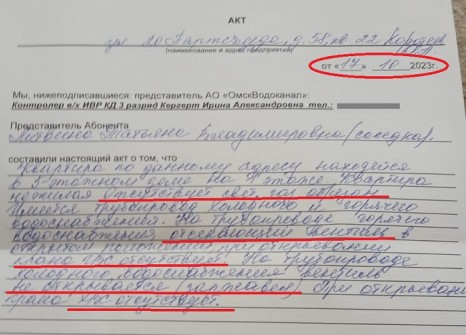 АКТ
ул 20 Партсъезда, д. 58, кв. 22
(наименование и адрес предприятия)
от «17» 10 2023г.
Мы, нижеподписавшиеся: представитель АО «ОмскВодоканал»:
Контролер в/х ИВР КД 3 разряд Кергерт Ирина Александровна тел.:
Представитель Абонента
Татьяна Владимировна (соседка).
составили настоящий акт о том, что
Квартира по данному адресу находится
в 5-этажном доме на 1 этаже. Квартира
нежилая (отсутствует свет, газ обрезан)
Имеется трубопровод холодного и горячего
водоснабжения. На трубопроводе горячего
водоснабжения отсекающий вентиль в
открытом положении при открывании
крана ХВС отсутствует. На трубопроводе
холодного водоснабжения вентиль
не открывается (заржавел). При открывании
крана ХВС отсутствует.